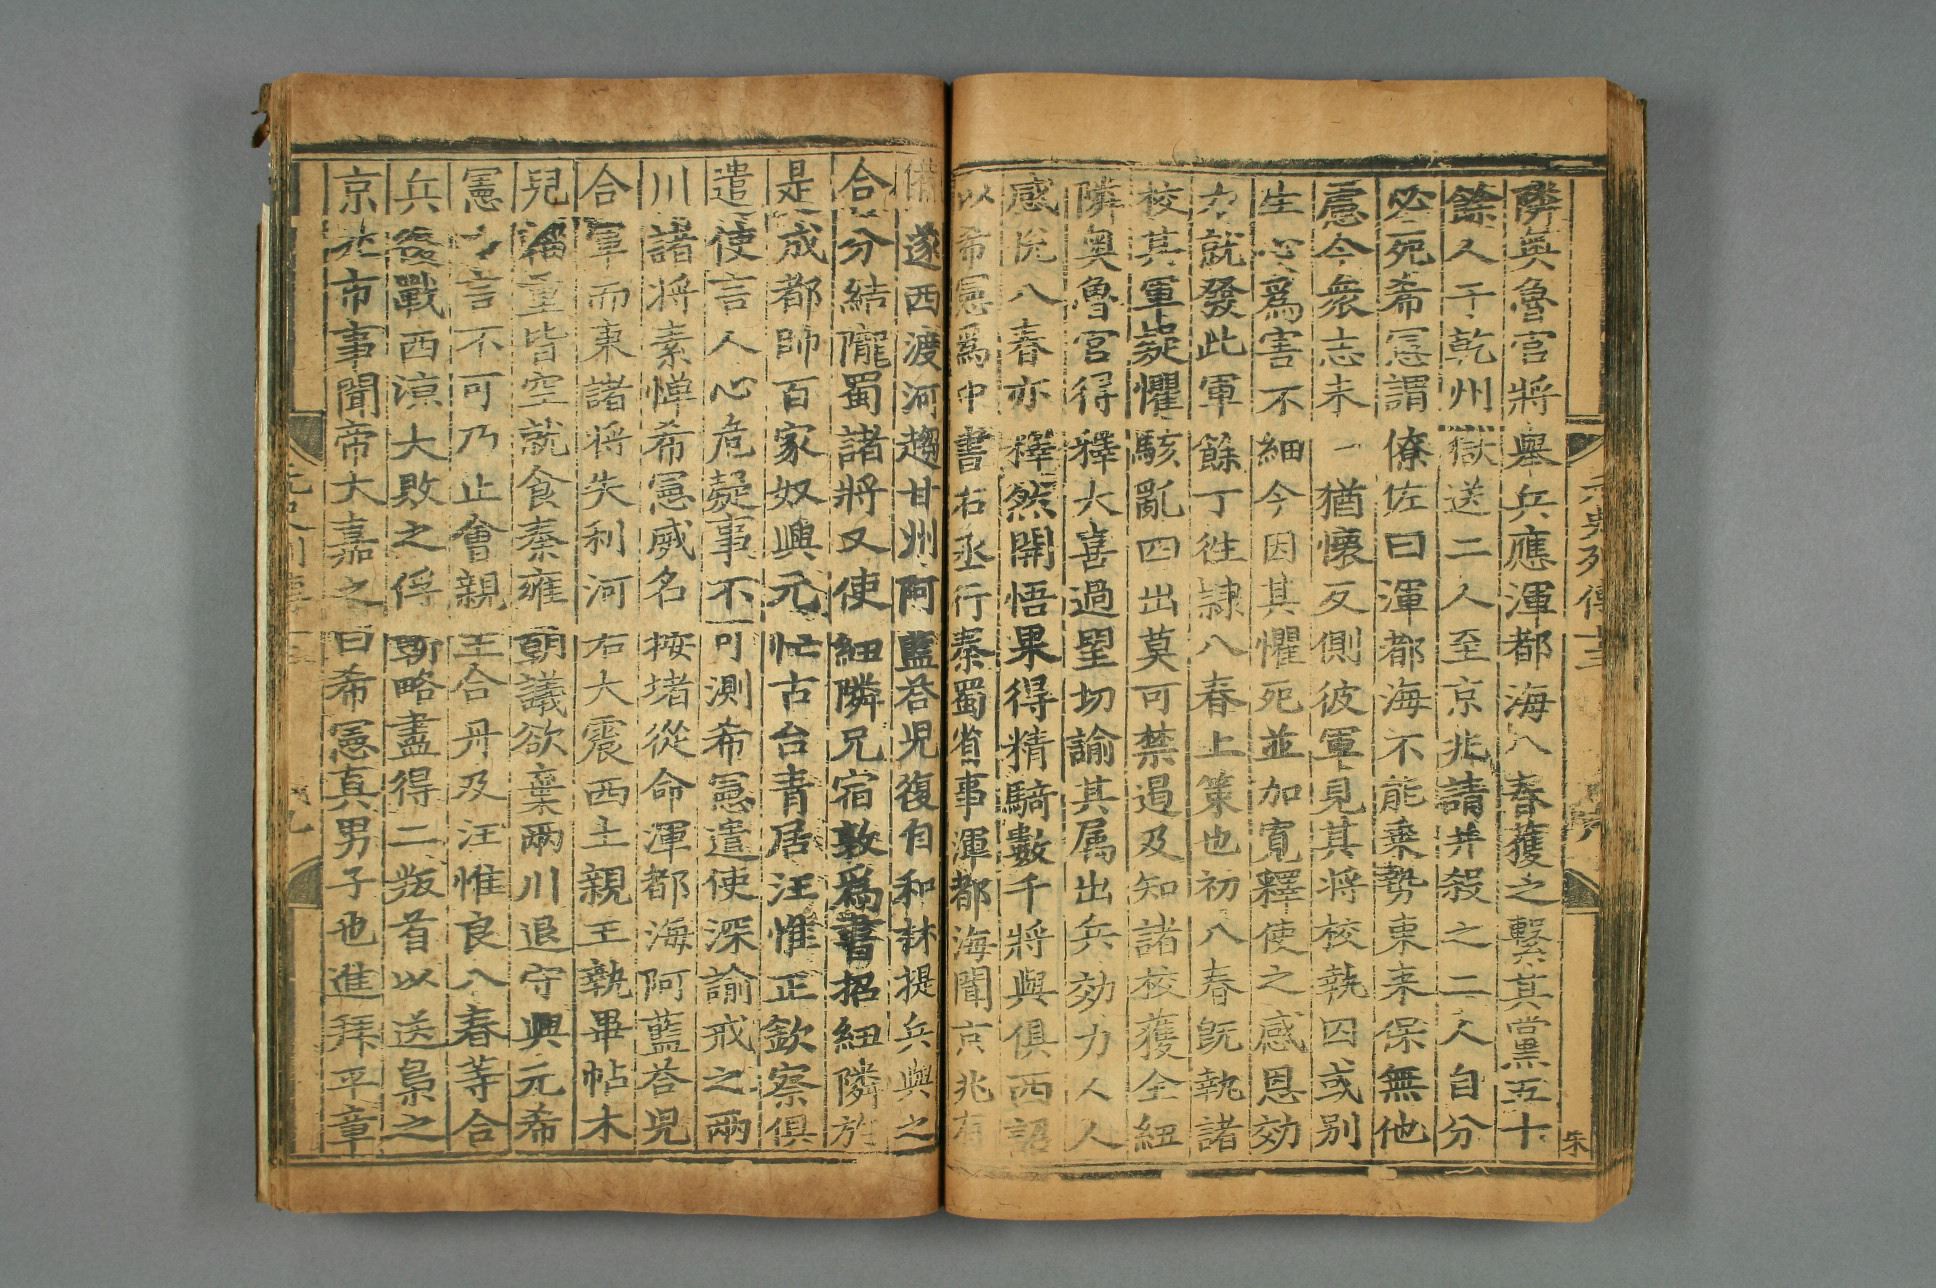 元史列傳十三
隣奧魯官將舉兵應渾都海八春獲之繫其黨五十
餘人于乾州獄送二人至京兆請并殺之二人自分
必死希憲謂僚佐曰渾都海不能乗勢東来保無他
慮今衆志未一猶懷反側彼軍見其將校執囚或别
生心爲害不細今因其懼死並加寛釋使之感恩効
力就發此軍餘丁徃隷八春上策也初八春旣執諸
校其軍疑懼駭亂四出莫可禁遏及知諸校獲全紐
隣奥魯官得釋大喜過望切諭其属出兵効力人人
感恱八春亦釋然開悟果得精騎數千將與俱西詔
以希憲爲中書右丞行秦蜀省事渾都海聞京兆有
備遂西渡河趨甘州阿藍荅児復自和林提兵與之
合分結隴蜀諸將又使紐隣兄宿敦爲書招紐隣於
是成都帥百家奴興元忙古台青居汪惟正欽察俱
遣使言人心危疑事不可測希憲遣使深諭戒之兩
川諸將素憚希憲威名按堵從命渾都海阿藍荅児
合軍而東諸將失利河右大震西土親王執畢帖木
兒輜重皆空就食秦雍朝議欲棄兩川退守興元希
憲力言不可乃止會親王合丹及汪惟良八春等合
兵復戰西凉大敗之俘斬略盡得二叛首以送梟之
京兆市事聞帝大嘉之曰希憲真男子也進拜平章
朱